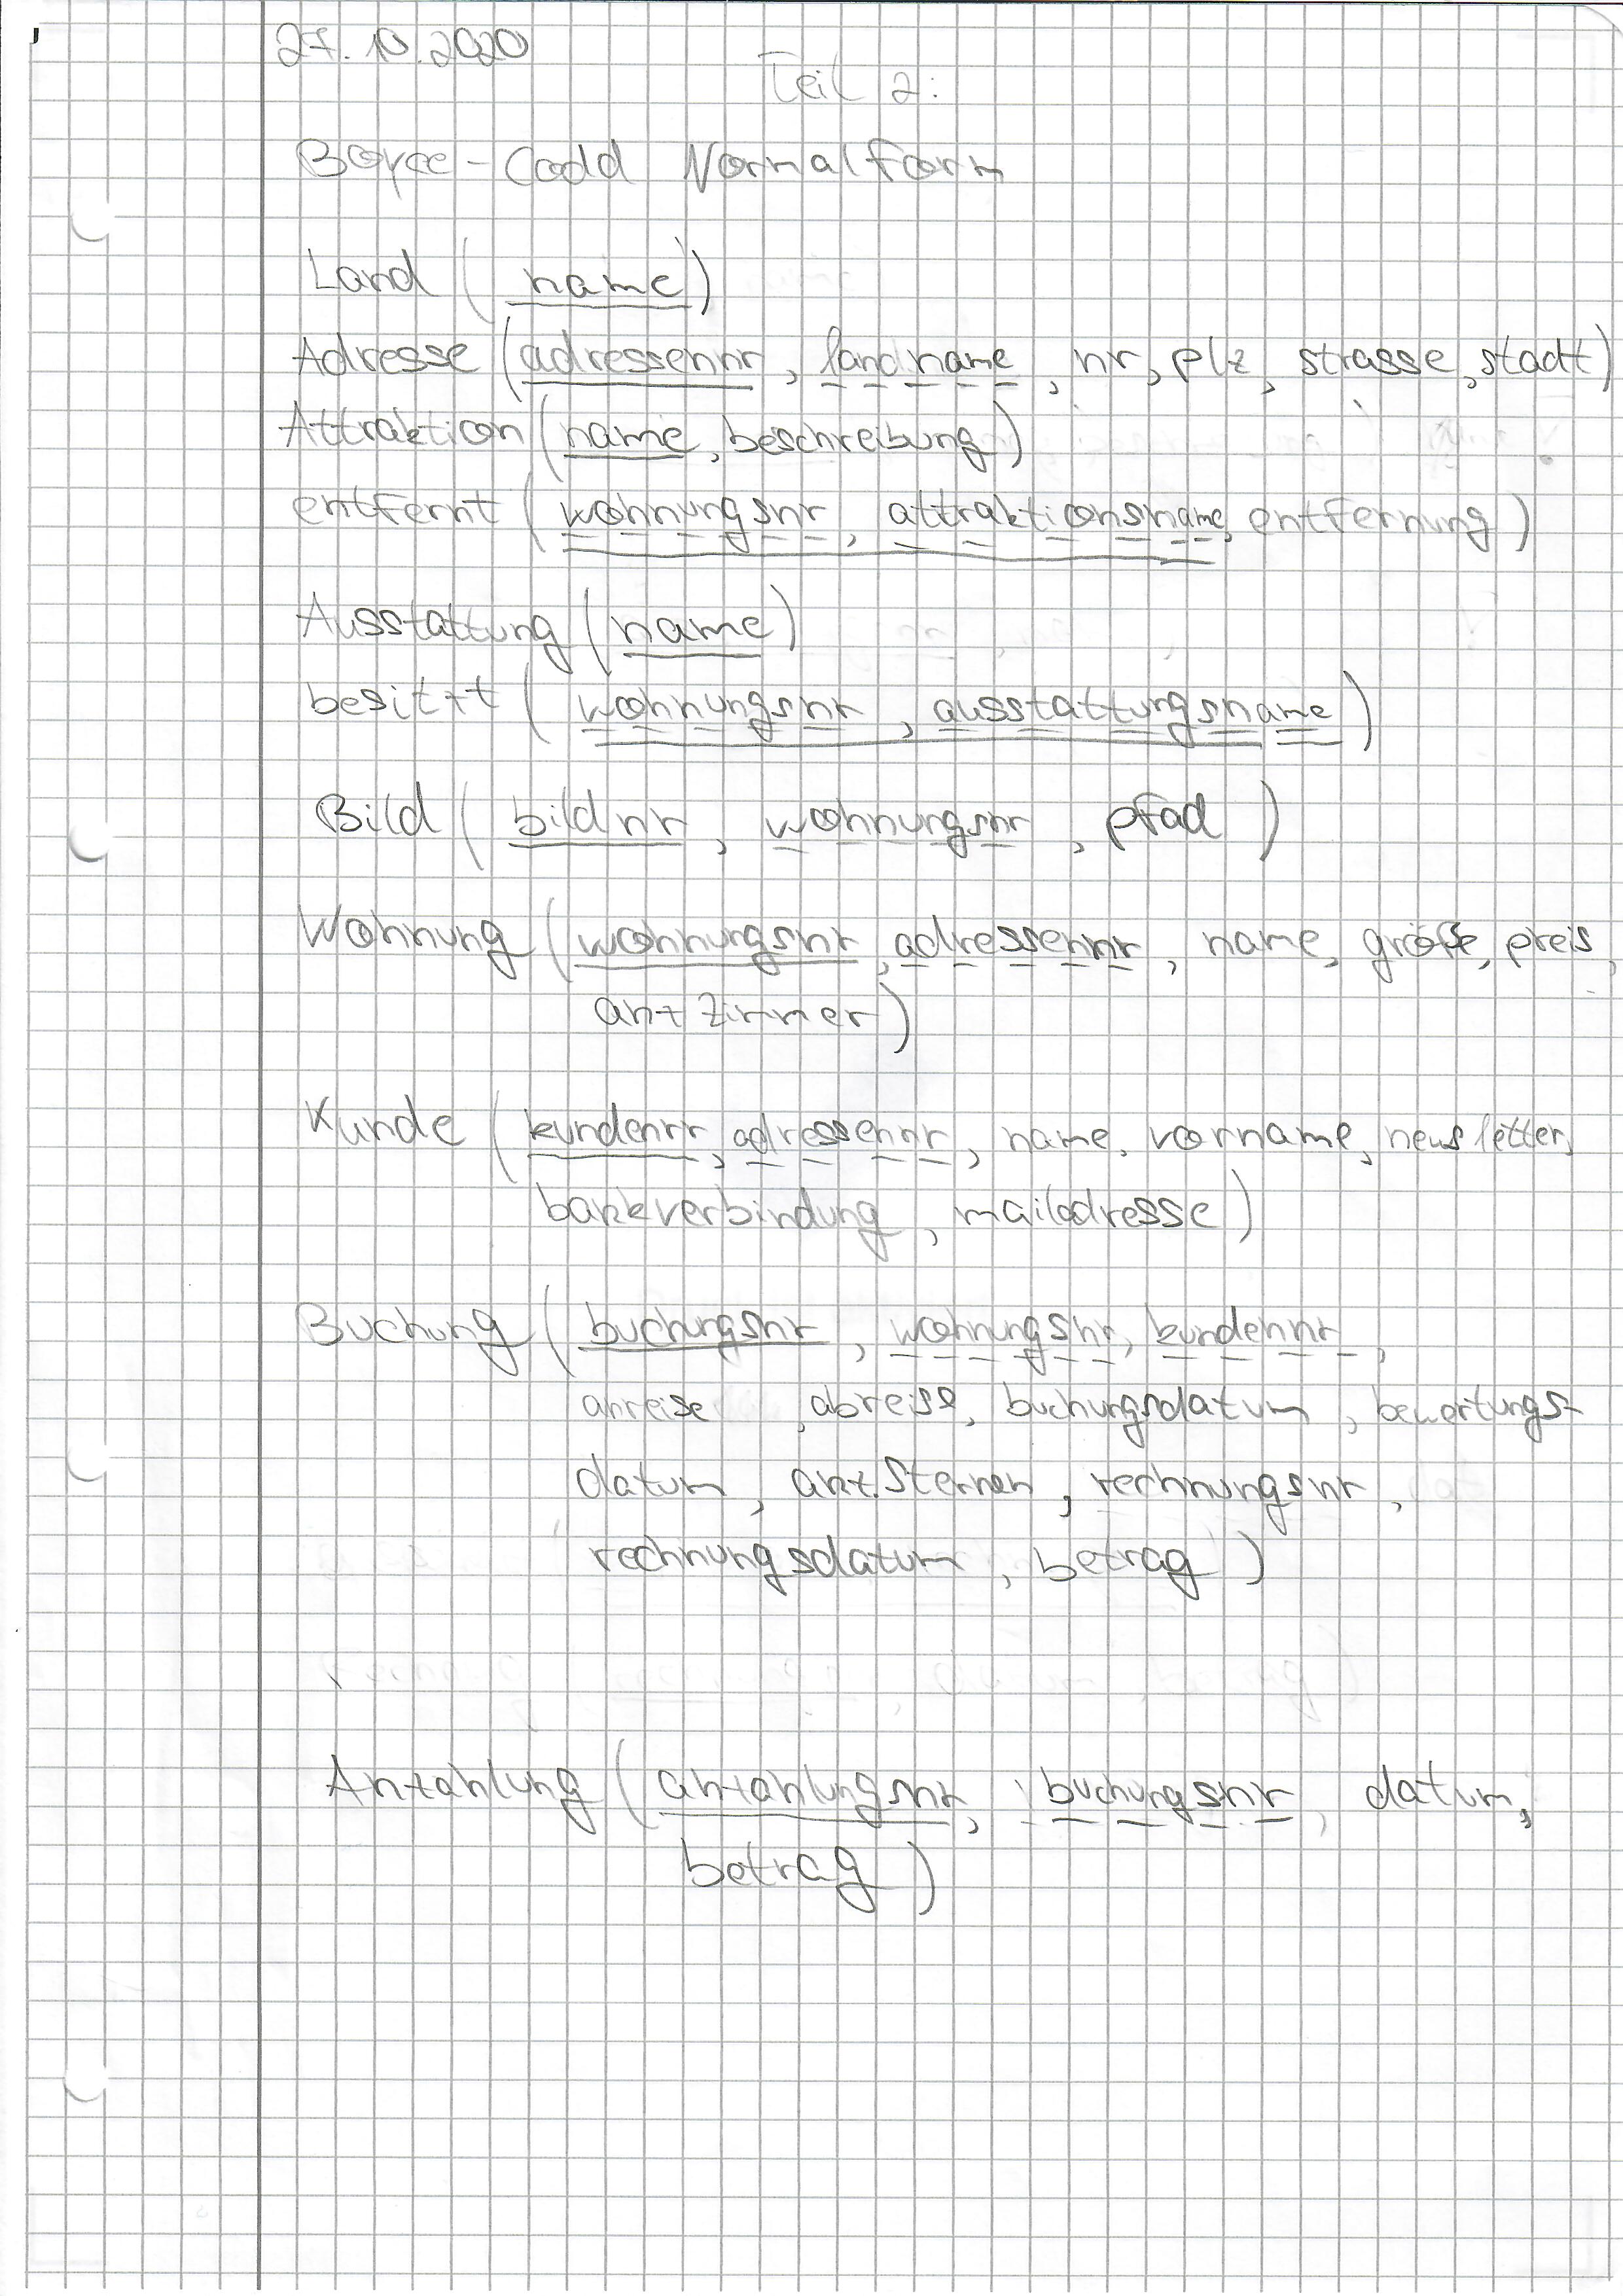 27.10.2020
Teil 2:
Boyce-Codd Normalform
Land (name)
Adresse (adressennr, landname, nr, plz, strasse, stadt)
Attraktion (name, beschreibung)
entfernt (wohnungsnr, attraktionsname, entfernung)
Ausstattung (name)
besitzt (wohnungsnr, ausstattungsname)
Bild (bildnr, wohnungsnr, pfad)
Wohnung (wohnungsnr, adressennr, name, größe, preis,
anzZimmer)
Kunde (kundennr, adressennr, name, vorname, newsletter,
bankverbindung, mailadresse)
Buchung (buchungsnr, wohnungsnr, kundennr,
anreise, abreise, buchungsdatum, bewertungs-
datum, anz.Sternen, rechnungsnr,
rechnungsdatum, betrag)
Anzahlung (anzahlungsnr, buchungsnr, datum,
betrag)